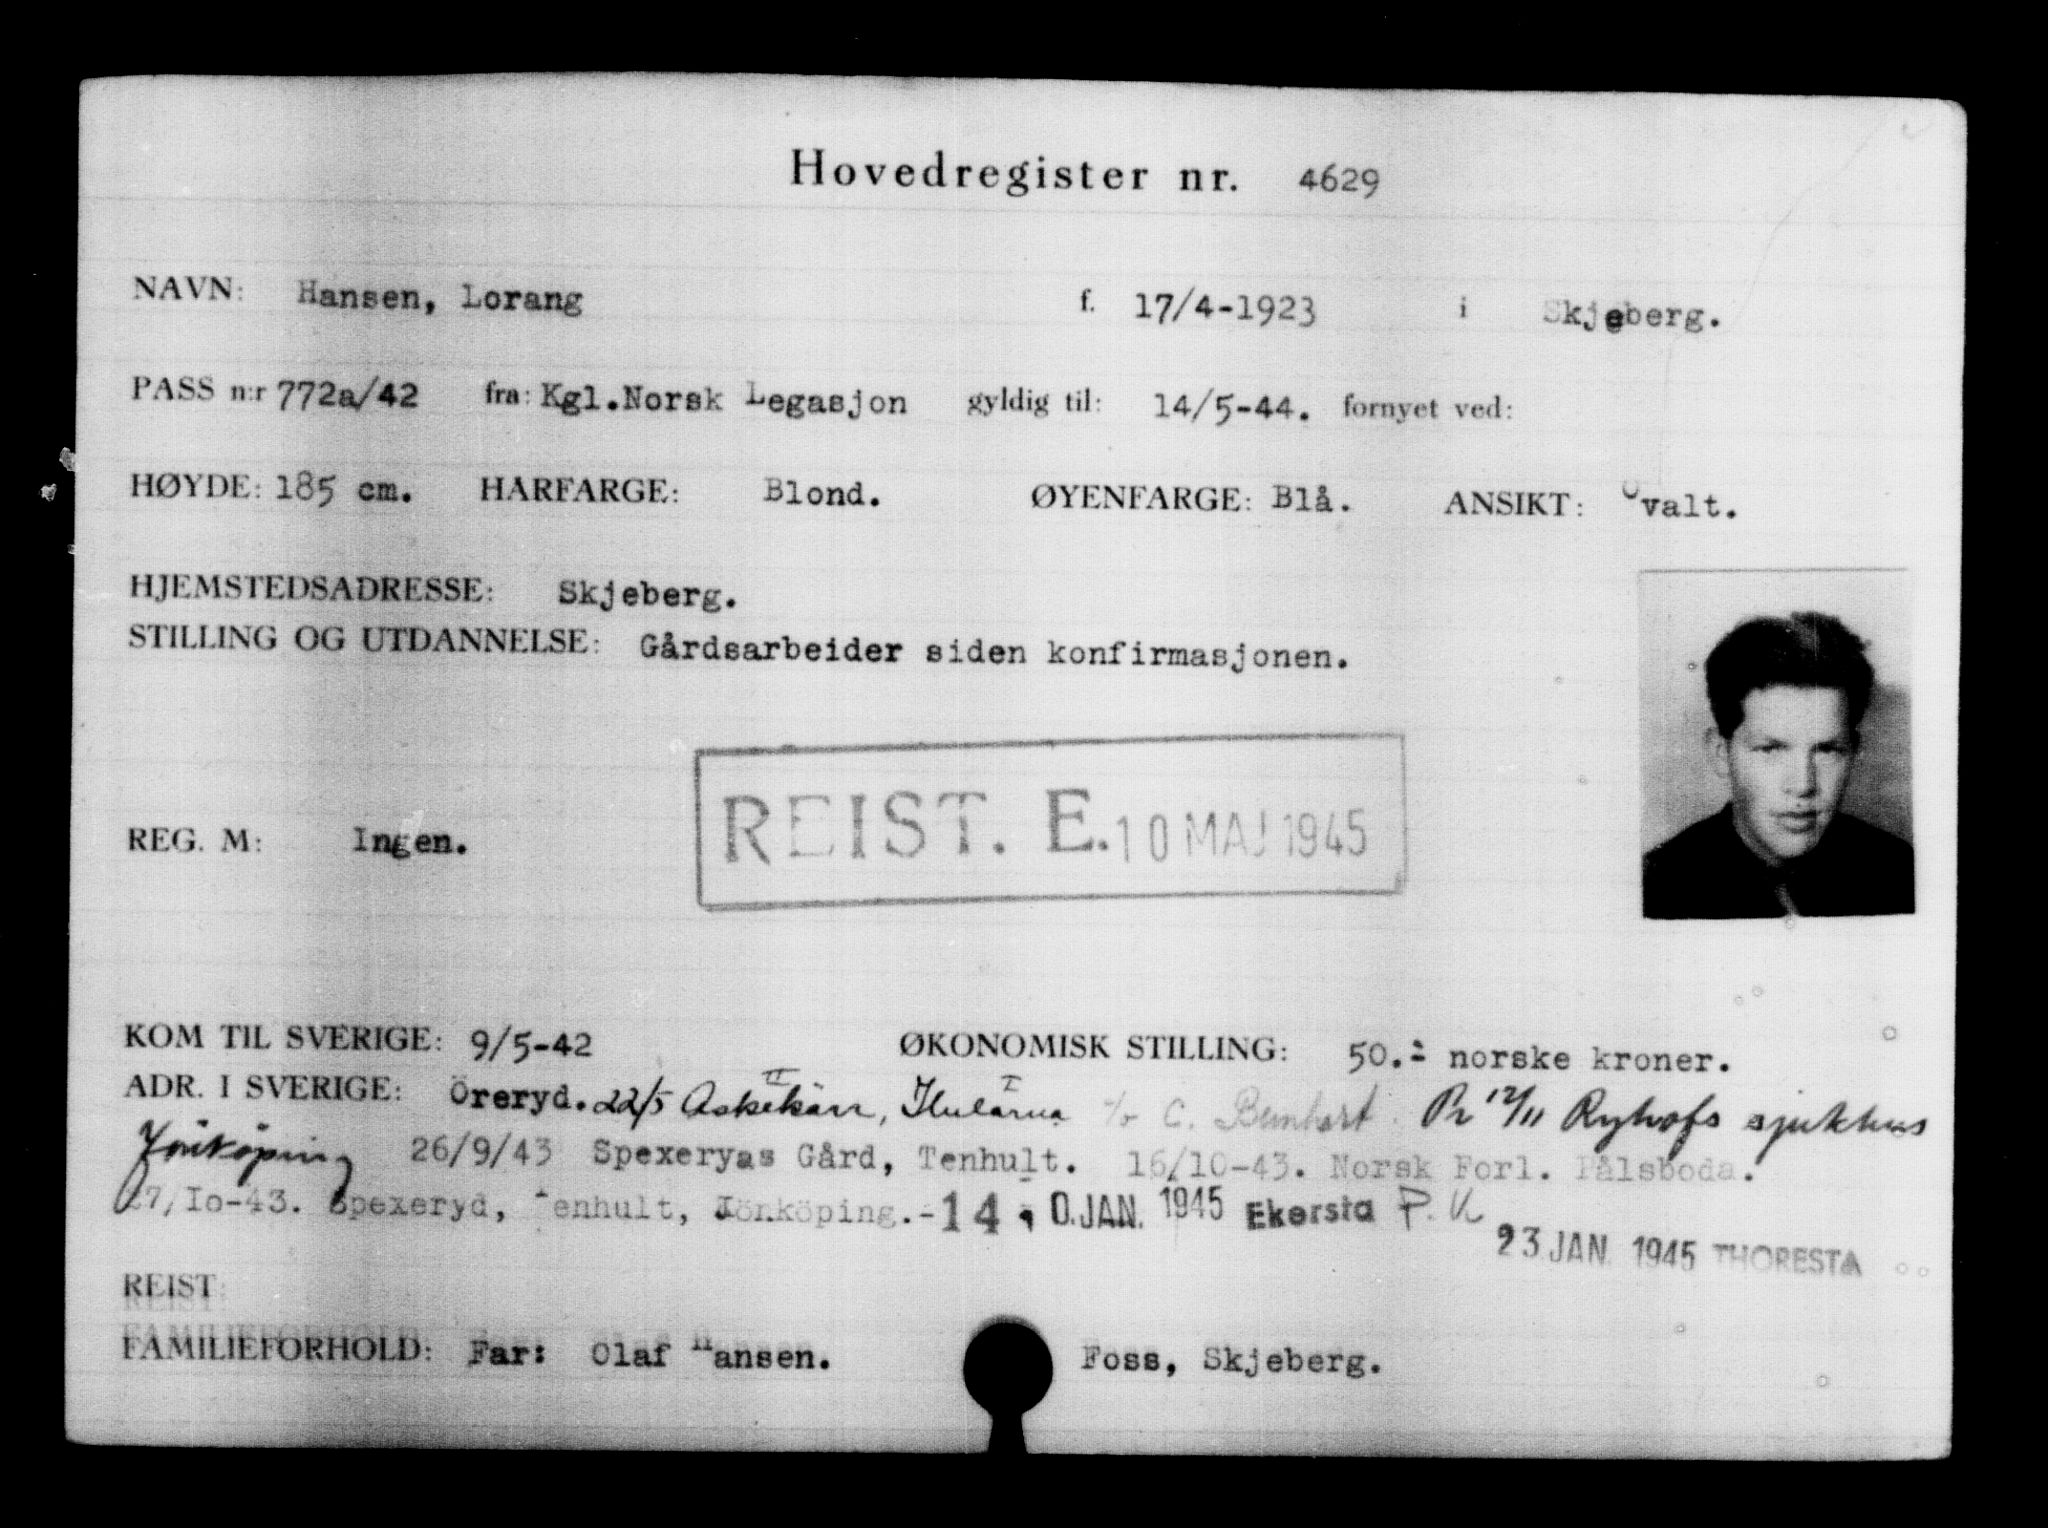 Hovedregister nr. 4629
NAVN: Hansen, Lorang f. 17/4-1923 i Skjeberg.
PASS n:r 772a/42 fra: Kgl.Norsk Legasjon gyldig til: 14/5-44. fornyet ved:
HØYDE: 185 cm. HARFARGE: Blond. ØYENFARGE: Blå. ANSIKT: Ovalt.
HJEMSTEDSADRESSE: Skjeberg.
STILLING OG UTDANNELSE: Gårdsarbeider siden konfirmasjonen.
REIST. E. 10 MAJ 1945
REG. M: Ingen.
KOM TIL SVERIGE: 9/5-42 ØKONOMISK STILLING: 50.- norske kroner.
ADR. I SVERIGE: Öreryd. 22/5 Askekärr, II I C. 12/11 Ryhofs sjukhus
Jönköping 26/9/43 Spexeryas Gård, Tenhult. 16/10-43. Norsk Forl. Pålsboda.
27/Io-43. Spexeryd, Tenhult, Jönköping.- 14 0.JAN. 1945 Ekersta P. K
23 JAN. 1945 THORESTA
REIST:
FAMILIEFORHOLD: Far: Olaf Hansen. Foss, Skjeberg.